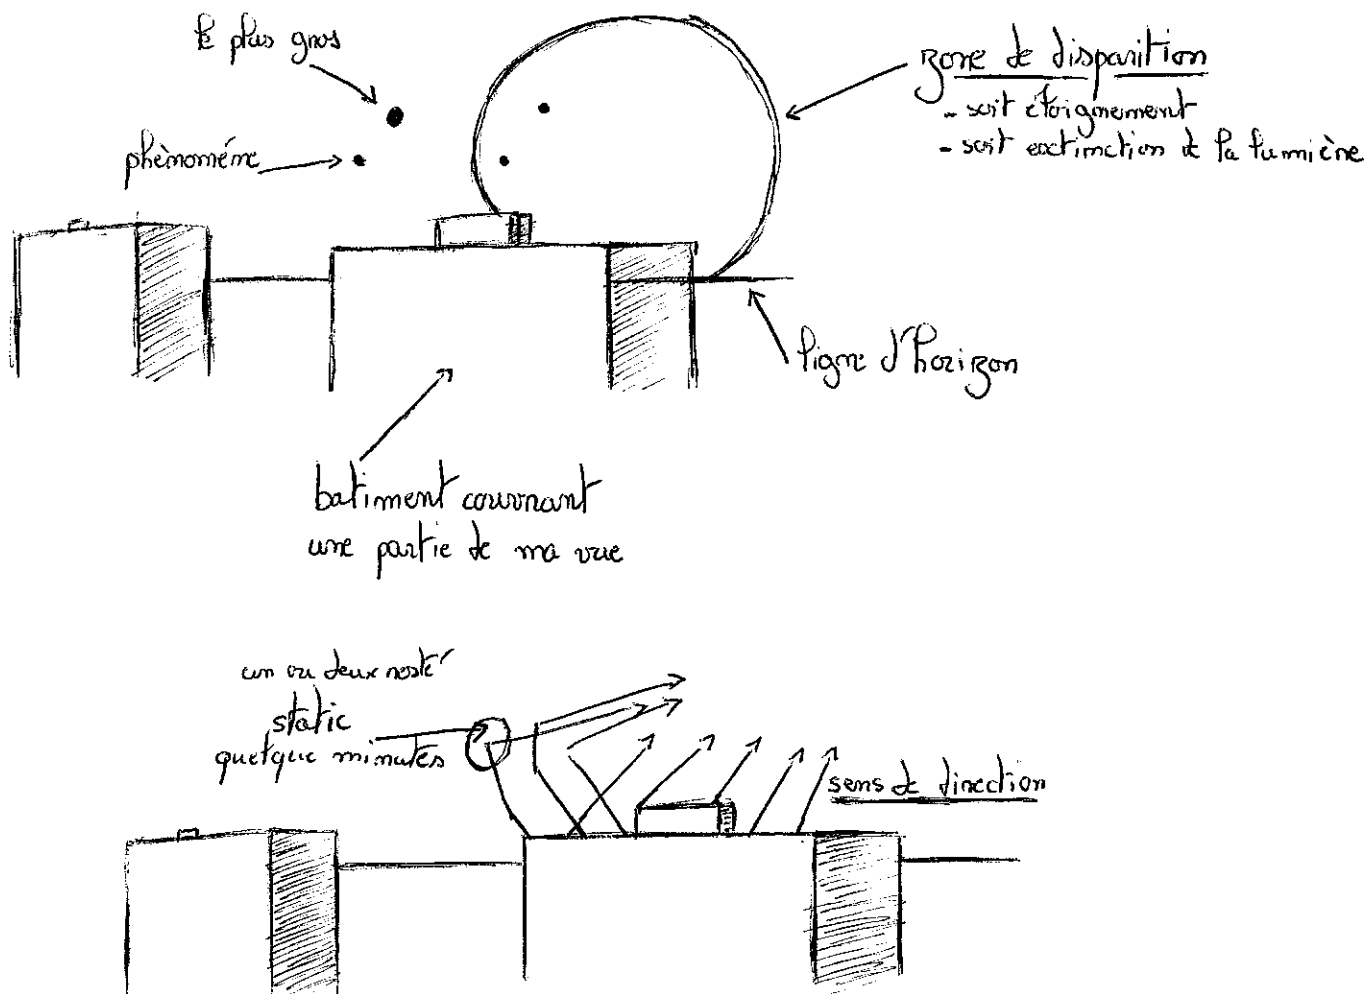 le plus gros
phènoméne
zone de disparition
- soit éloignement
- soit exctinction de la lumière
ligne d'horizon
batiment couvrant
une partie de ma vue
un ou deux resté
static
quelque minutes
sens de direction